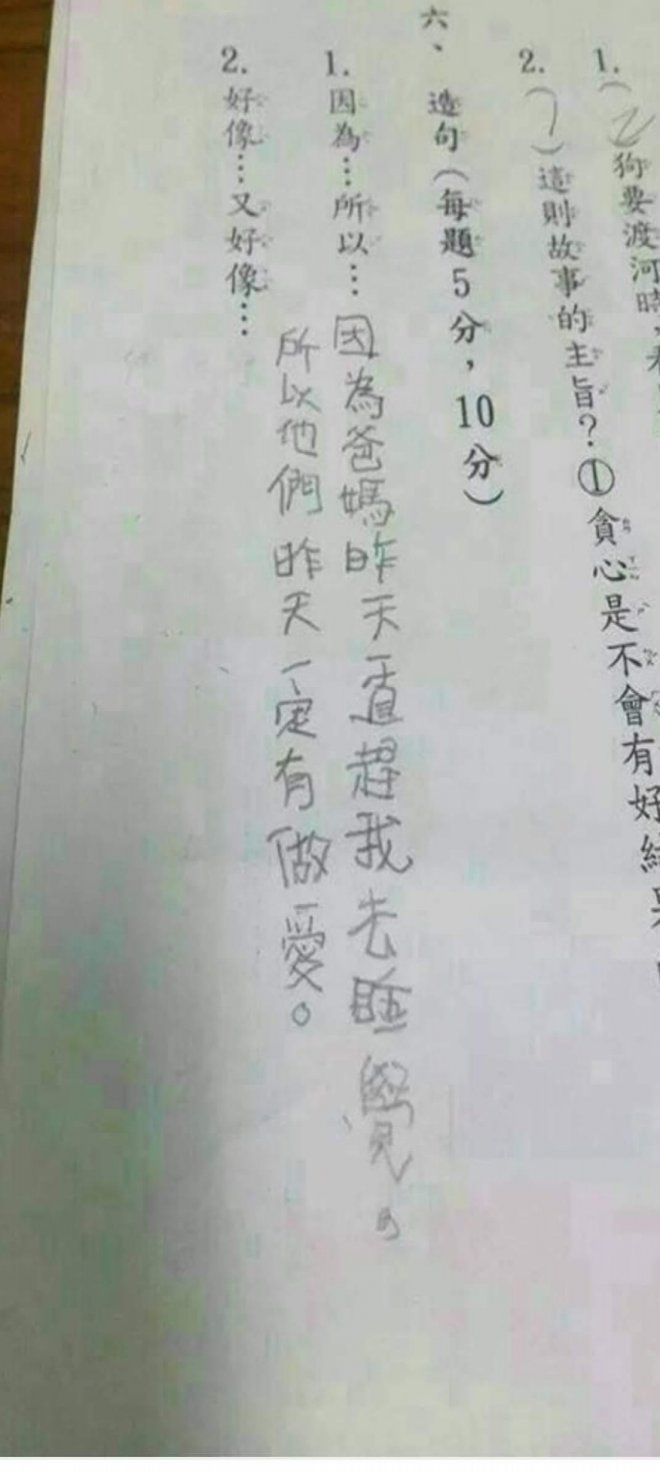 1.(2)狗要渡河時，
2.(1)這則故事的主旨？①貪心是不會有好結果
六、造句（每題5分，10分）
1.因為…所以…因為爸媽昨天一直趕我去睡覺，
所以他們昨天一定有做愛。
2.好像…又好像…